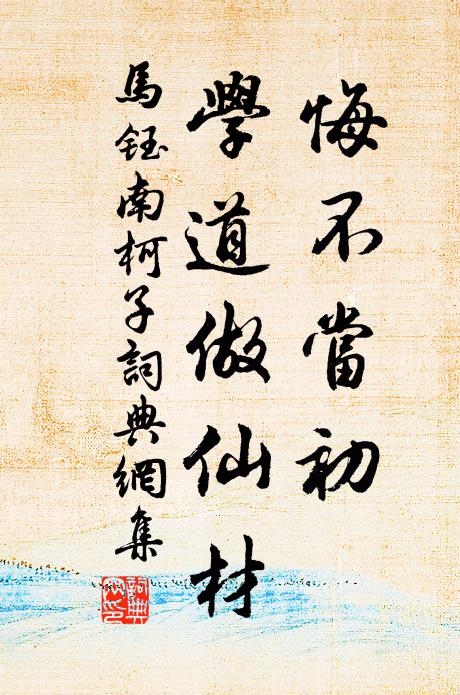 悔不當初
學道做仙材
馬鈺南柯子詞典網集